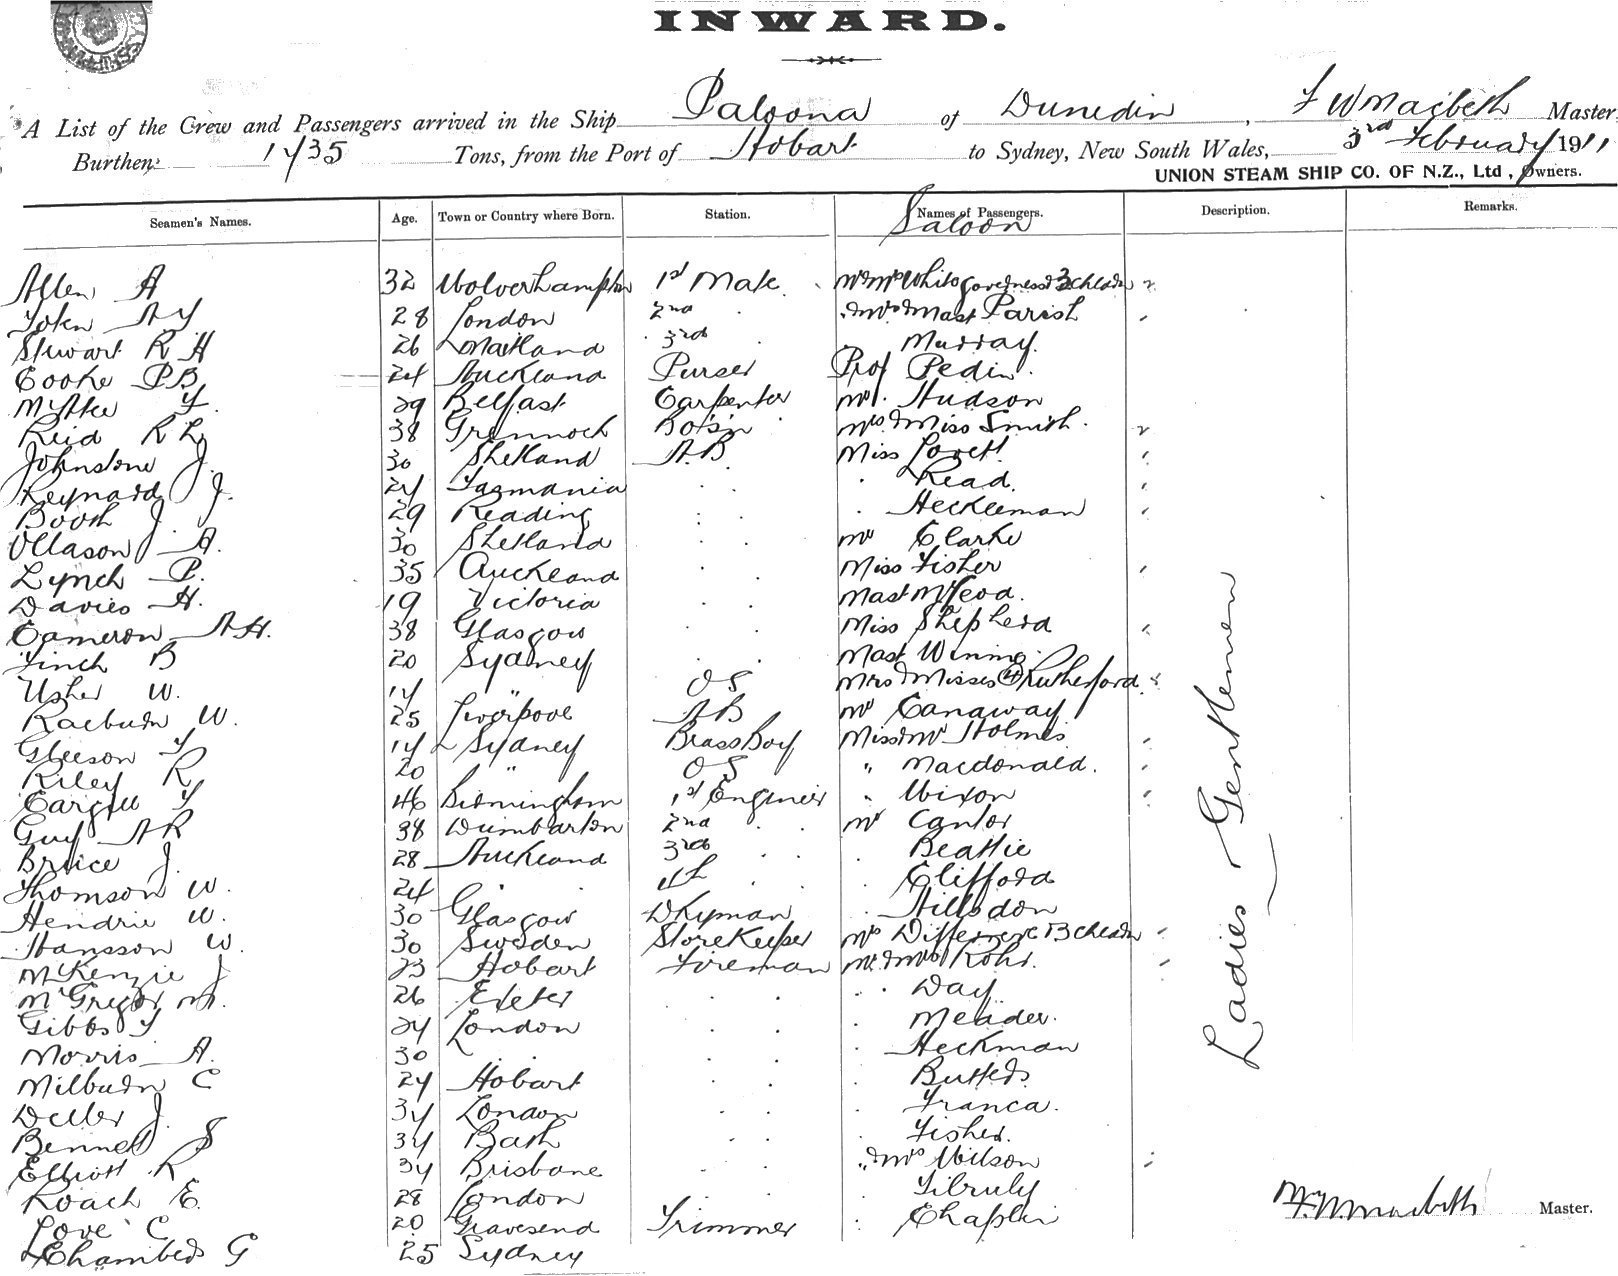 INWARD.
A List of the Crew and Passengers arrived in the Ship Paloona of Dunedin, F W Macbeth Master
Burthen, 1735 Tons, from the Port of Hobart to Sydney, New South Wales, 3rd February 1911
UNION STEAM SHIP CO. OF N.Z., Ltd, Owners.
Seamen's Names. Age. Town or Country where Born. Station. Names of Passengers. Description. Remarks.
Saloon
Allen A 32 Wolverhampton 1st Mate Mr Mrs White governess & 3 children
28 London 2nd Mrs & Mast Parish
Stewart R H 26 Maitland 3rd Murray.
Cooke P B 24 Auckland Purser Prof Pedin.
29 Belfast Carpenter Mr. Hudson
Reid R L 38 Greennock Bo's'n Mrs & Miss Smith.
Johnstone J. 30 Shetland A.B Miss Lovett
Reynard J. 27 Tasmania Read.
Booth J. 29 Reading Heckleman
Ollason A. 30 Shetland Mr Clarke
Lynch P. 35 Auckland Miss Fisher
Davies H. 19 Victoria Mast McLeod.
Cameron A H. 38 Glasgow Miss Shepherd
Finch B 20 Sydney Mast Wenning.
Usher W. 17 " O S Mrs & Misses (4) Rutherford
Raeburn W. 25 Liverpool A B Mr Canaway
Gleeson T 17 Sydney Brass Boy Miss & Mr Holmes
Riley R 20 " O S " Macdonald.
Cargill T 46 Birmingham 1st Engineer " Wixon
Guy A R 38 Dumbarton 2nd Mr Cantor
Bruce J. 28 Auckland 3rd Beattie
Thomson W. 24 4th Clifford
Hendrie W. 30 Glasgow Dkyman Hillsdon
Hansson W. 30 Sweden Storekeeper Mrs 3 children
McKenzie J 23 Hobart Fireman Mr & Mrs Rohr.
McGregor M. 26 Exeter Day
Gibbs T 27 London Meader.
Morris A. 30 Heckman
Milburn C 27 Hobart Butters
Deller J. 37 London Franca.
Bennett S 37 Bath Fisher.
Elliott R 37 Brisbane " & Mrs Wilson
Roach E. 28 London
Love C 20 Gravesend Trimmer Chaplin
Chambers G 25 Sydney
Ladies Gentlemen
F. W. Macbeth Master.